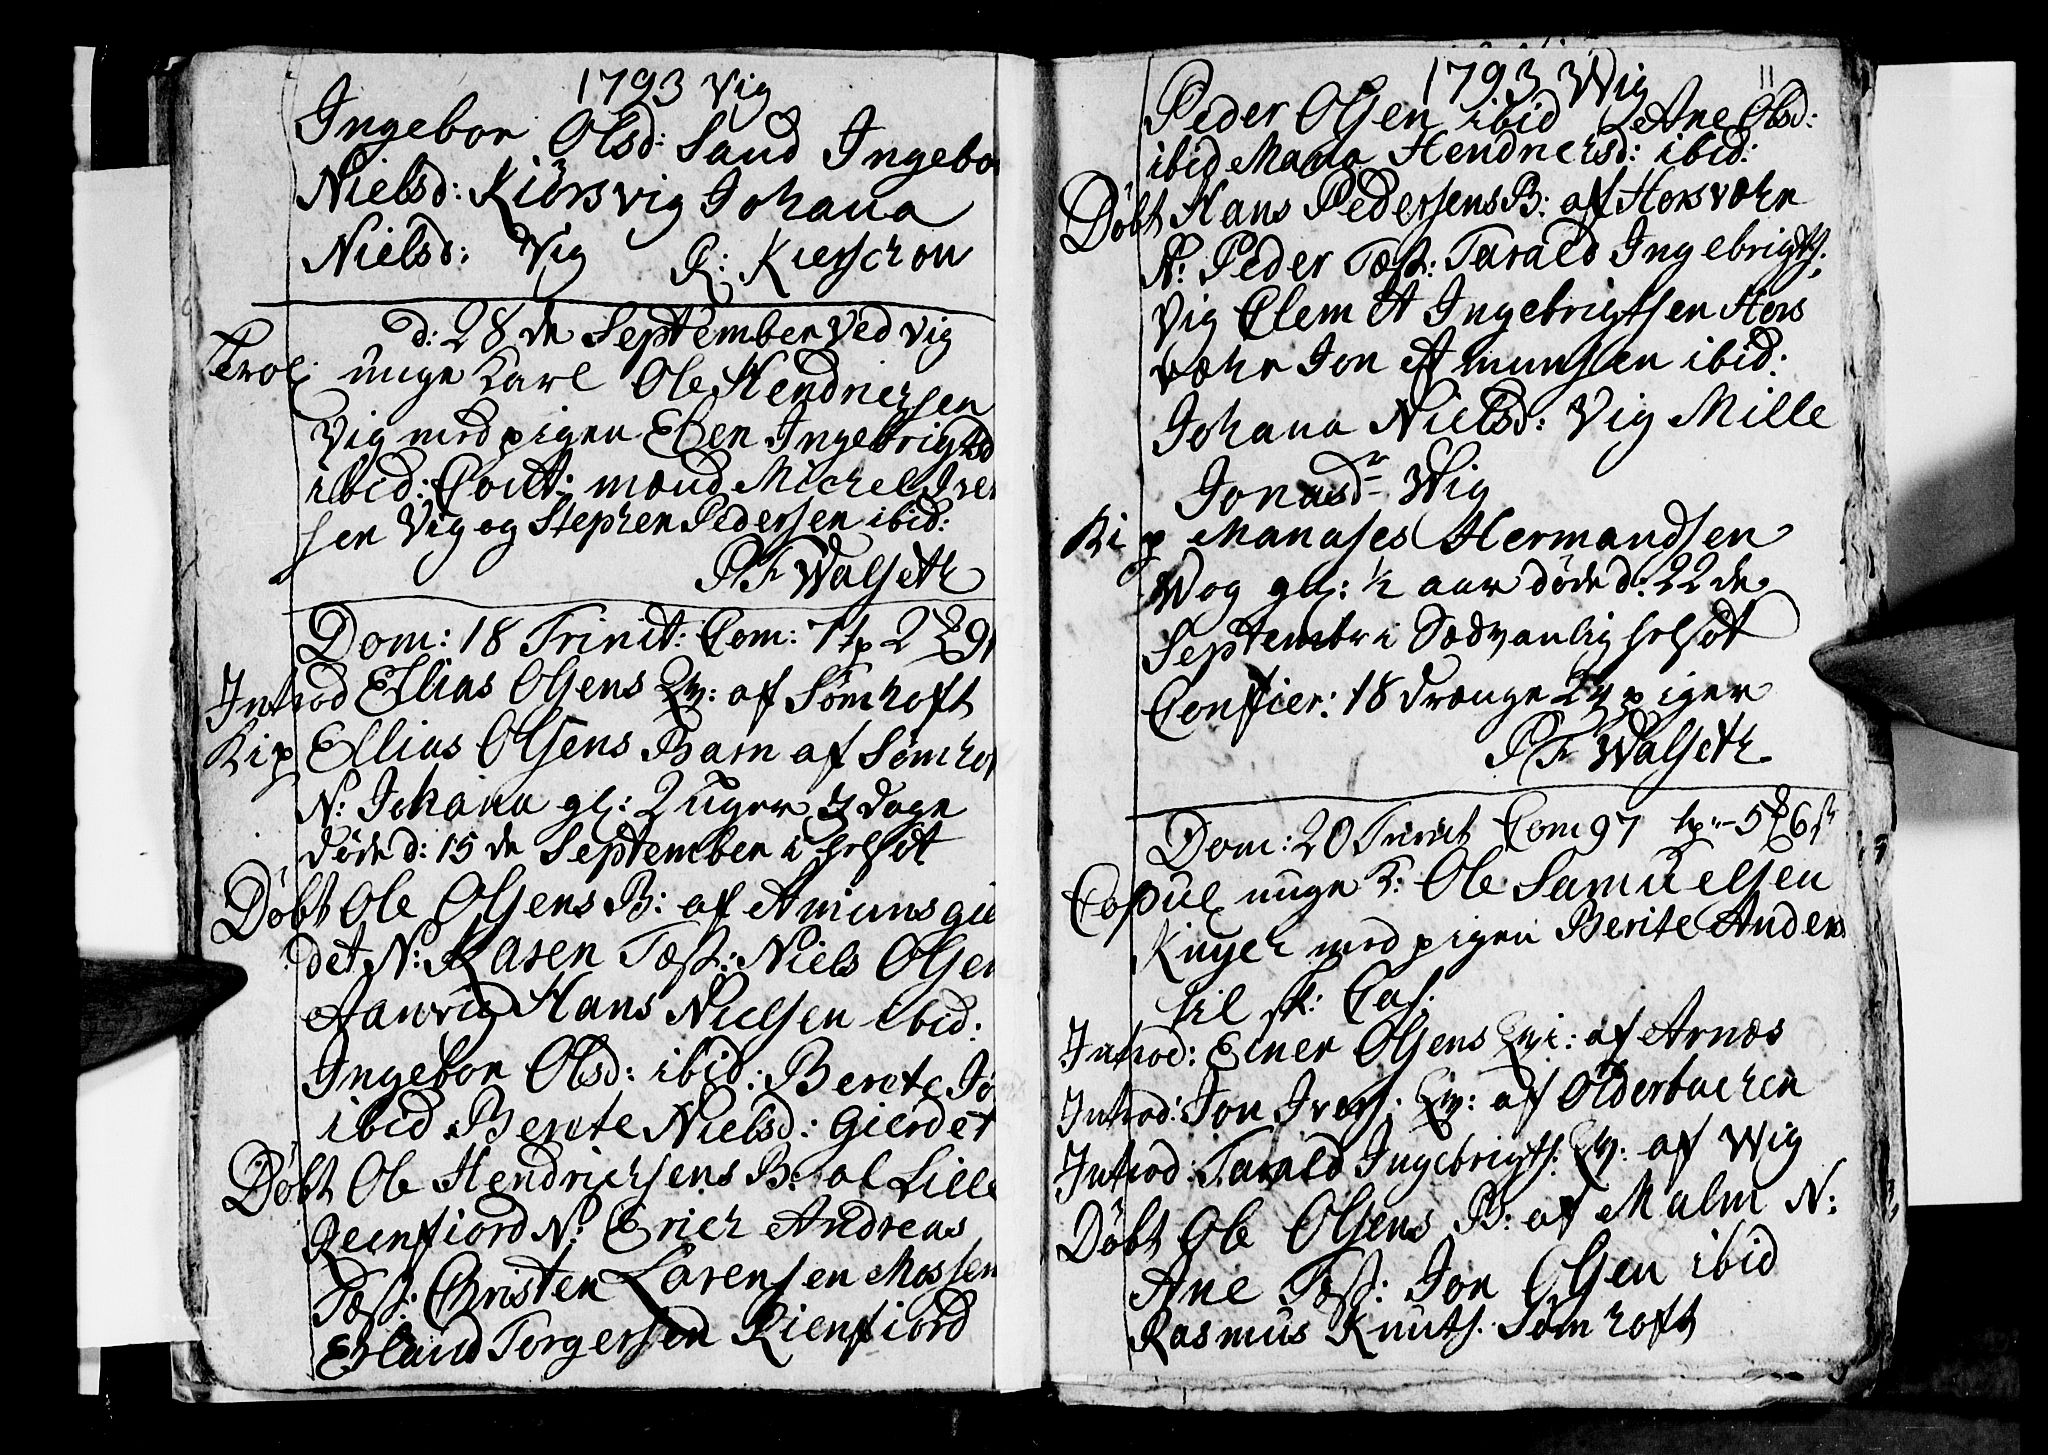 1793 Vig
Ingebor Olsd: Sand Ingebor
Nielsd: Kiörsvig Johana
Nielsd: Vig R: Kierschow
d: 28 de September ved Vig
Trol: unge Karl Ole Hendrichsen
Vig med pigen Elen Ingebrigtsd
ibid: Cout: mænd Michel Iver
sen Vig og Stephen Pedersen ibid:
P F Walseth
Dom: 18 Trinit: Com: 71 p 2
Introd Ellias Olsens Qv: af Sømhoft
Kip Ellias Olsens Barn af Sømhof
N: Johana gl: 2 uger 3 dage
døde d: 15 de September i helsot
Døbt Ole Olsens B: af Amunsgier
det N: Karen Tæst: Niels Olsen
Aanvig Hans Nielsen ibid:
Ingebor Olsd: ibid: Berete Jo
ibid Berete Nielsd: Gierdet
Døbt Ole Hendrichsens B: af Lille
Reenfiord N: Erich Andreas
Tæst: Christen Larensen Mossen
Erland Torgersen Rienfiord
1793 Wig 11
Peder Olsen ibid Ane Olsd:
ibid Mana Hendrichsd: ibid:
Døbt Hans Pedersens B: af Horsvæhr
N: Peder Tæst: Tarald Ingebrigts:
Vig Clemet Ingebrigtsen Hors
væhr Jon Amunsen ibid:
Johana Nielsd: Vig Mille
Jonasd: Wig
Kip Manases Hermandsen
Wog gl: 1/2 aar døde d: 22 de
Septembr i Sædvanlig helsot
Confier: 18 drænge 24 piger
P F Walseth
Dom: 20 Trinit Com 97 tp: 5 6 s
Copul unge K: Ole Samuelsen
Knych med pigen Berite Anders
til sk: Cas:
Introd: Einer Olsens Qvi: af Arnæs
Introd: Jon Ivers: Qv: af Olderbachen
Introd: Tarald Ingebrigts: Qv: af Wig
Døbt Ole Olsens B: af Malm N:
Ane Tæst: Jon Olsen ibid
Rasmus Knuts: Sømhoft